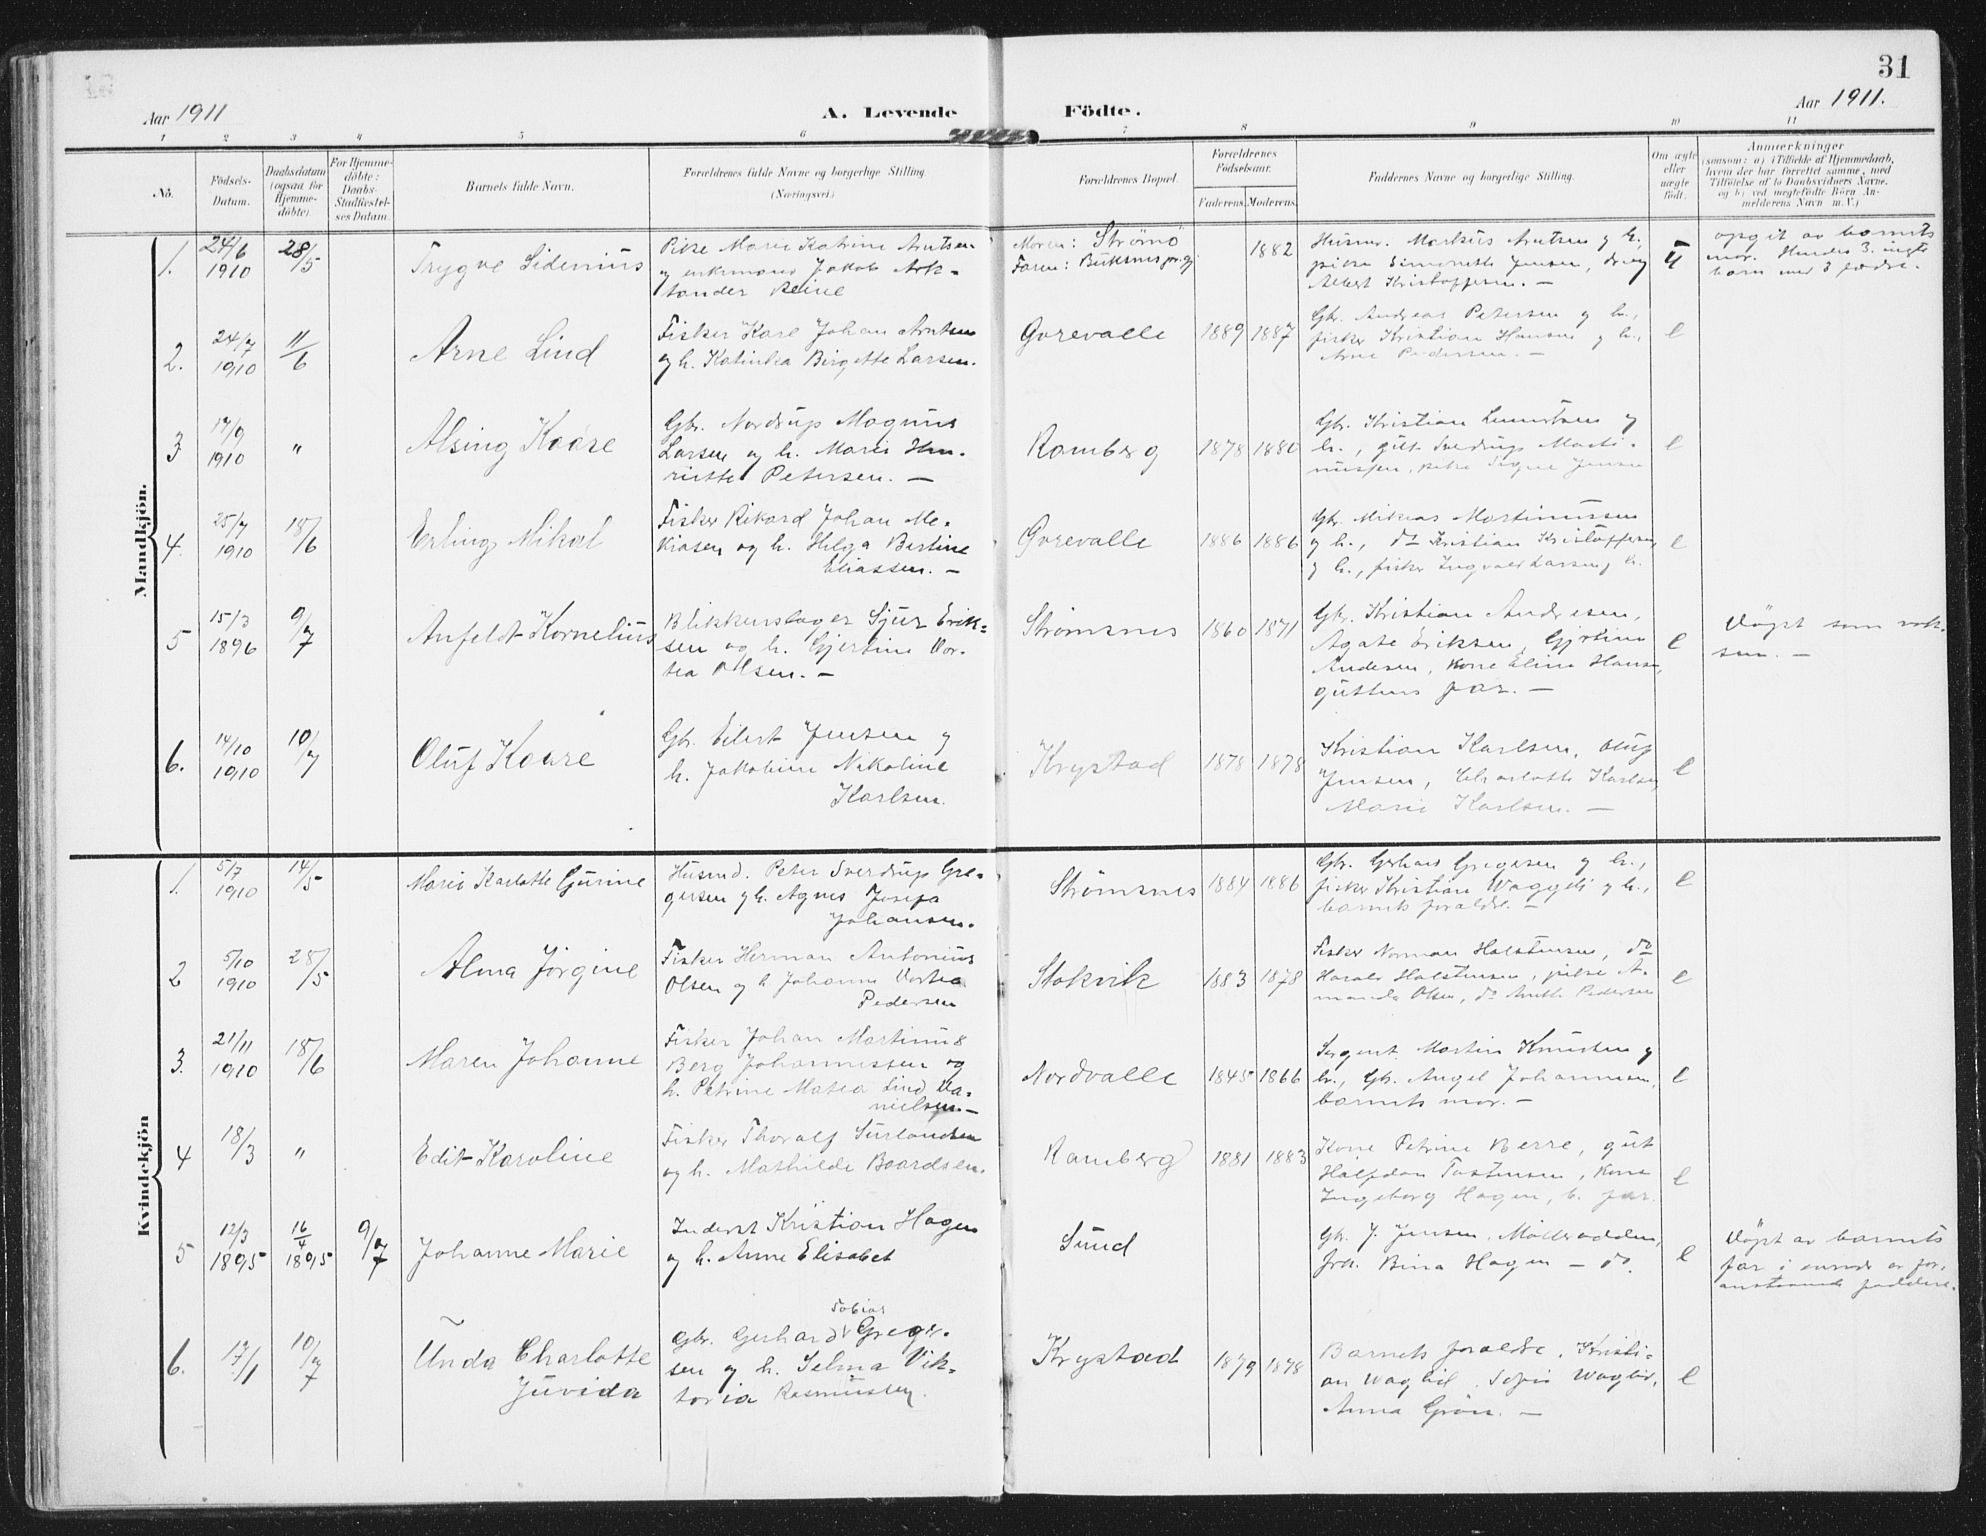 31
Aar 1911
A. Levende Födte.
Aar 1911.
1 2 3 4 5 6 7 8 9 10 11
No.
Födsels-
Datum.
Daabsdatum
(ogsaa for
Hjemme-
döbte)
For Hjemme-
döbte:
Daabs-
Stadfæstel-
ses Datum.
Barnets fulde Navn.
Forældrenes fulde Navne og borgerlige Stilling.
(Næringsvei.)
Forældrenes Bopæl.
Forældrenes
Födselsaar.
Faderens. Moderens.
Faddernes Navne og borgerlige Stilling.
Om ægte
eller
uægte
födt.
Anmærkninger
(saasom: a) i Tilfælde af Hjemmedaab,
hvem der har forrettet samme, med
Tilföielse af to Daabsvidners Navne.
og b) ved uægtefödte Börn An-
melderens Navn m. V.)
Mandkjön.
1.
24/6
1910
28/5
Trygve Sidenius
Pike Marie Katrine Arntsen
og enkemand Jakob Ark-
tander Reine
Moren: Strömö
Faren: Buksnes
1882
Husm. Markus Arntsen g h.,
pike Simonette Jensen,
Albert Kristoffersen. —
u
opgit av barnets
mor. Hendes 3. uegte
barn med 3 fædre.
2.
24/7
1910
11/6
Arne Lind
Fisker Karl Johan Arntsen
og h. Katinka Birgitte Larsen.
Gorevalle
1889 1887
Gbr. Andreas Petersen g h.,
fisker Kristian Hansen g h.,
Arne Pedersen. —
e
3
17/9
1910
"
Alsing Kaare
Gbr. Nordrup Magnus
Larsen og h. Marie Hen-
riette Petersen. —
Ramberg
1878 1880
Gbr. Kristian g
h., gut Sverdrup Marti-
nussen, pike Signe Jensen
e
4.
25/7
1910
18/6
Erling Mikal
Fisker Rikard Johan Me-
kiasen og h. Helga Bertine
Eliassen. —
Gorevalle
1886 1886
Gbr. Mikias Martinussen
g h., do Kristian Kristoffersen
g h., fisker Ingvald Larsen g h.
e
5
15/3
1896
9/7
Anfeldt Kornelius
Blikkenslager Sjur Erik-
sen og h. Gjertine Dor-
tea Olsen. —
Strömsnes
1860 1871
Gbr. Kristian Andresen,
Agate Eriksen, Gjertine
Andersen, kone Eline Hansen,
guttens far. —
e
Döpt som vok-
sen. —
6.
14/10
1910
10/7
Oluf Kaare
Gbr. Eilert Jensen og
h. Jakobine Nikoline
Karlsen.
Krystad
1878 1878
Kristian Karlsen, Oluf
Jensen, Charlotte Karlsen,
Marie Karlsen. —
e
Kvindekjön
1.
5/7
1910
14/5
Marie Karlotte Gurine
Husmd. Peter Sverdrup Gre-
gersen g h. Agnes Josefa
Johansen.
Strömsnes
1884 1886
Gbr. Gerhard Gregersen g h.,
fisker Kristian g h.,
barnets foraldre. —
e
2
5/10
1910
28/5
Alma Jörgine
Fisker Herman Antonius
Olsen og h Johanne Dortea
Pedersen
Stokvik
1883 1878
Fisker Norman Halstensen, do
Harald Halstensen, pike A-
manda Olsen, do Pedersen
e
3.
21/11
1910
18/6
Maren Johanne
Fisker Johan Martinus
Berg Johannessen og
h. Petrine Matea Lind Da-
nielsen. —
Nordvalle
1845 1866
Sergent. Martin Knutsen g
h., Gbr. Angel Johannesen,
barnets mor. —
e
4
18/3
"
Edit Karoline
Fisker Thoralf Surlandsen
og h. Mathilde Baardsen.
Ramberg
1881 1883
Kone Petrine Berre, gut
Halfdan Tostensen, kone
Ingeborg Hagen, b. far.
e
5
12/3
1895
16/4
1895
9/7
Johanne Marie
Inderst Kristian Hagen
og h. Anne Elisabet
Sund
Gbr. J. Jensen, Mölleodden,
frk. Bina Hagen — do.
e
Döpt av barnets
far i nærvær av for-
anstaaende faddere.
6.
17/1
10/7
Unda Charlotte
Juvida
Tobias
Gbr. Gerhard Greger-
sen og h. Selma Vik-
toria Rasmussen.
Krystad
1879 1878
Barnets foraldre, Kristi-
an Waglid, Sofie Waglid,
Anna Grön. —
e